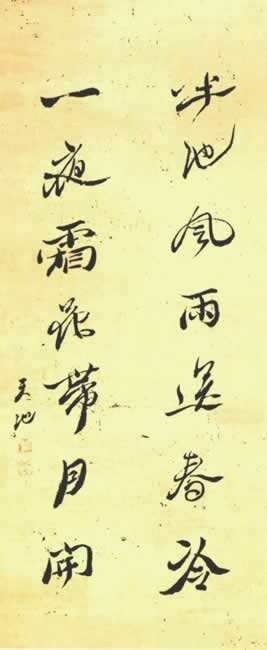 半池風雨送春冷
一夜霜花帶月開
天池